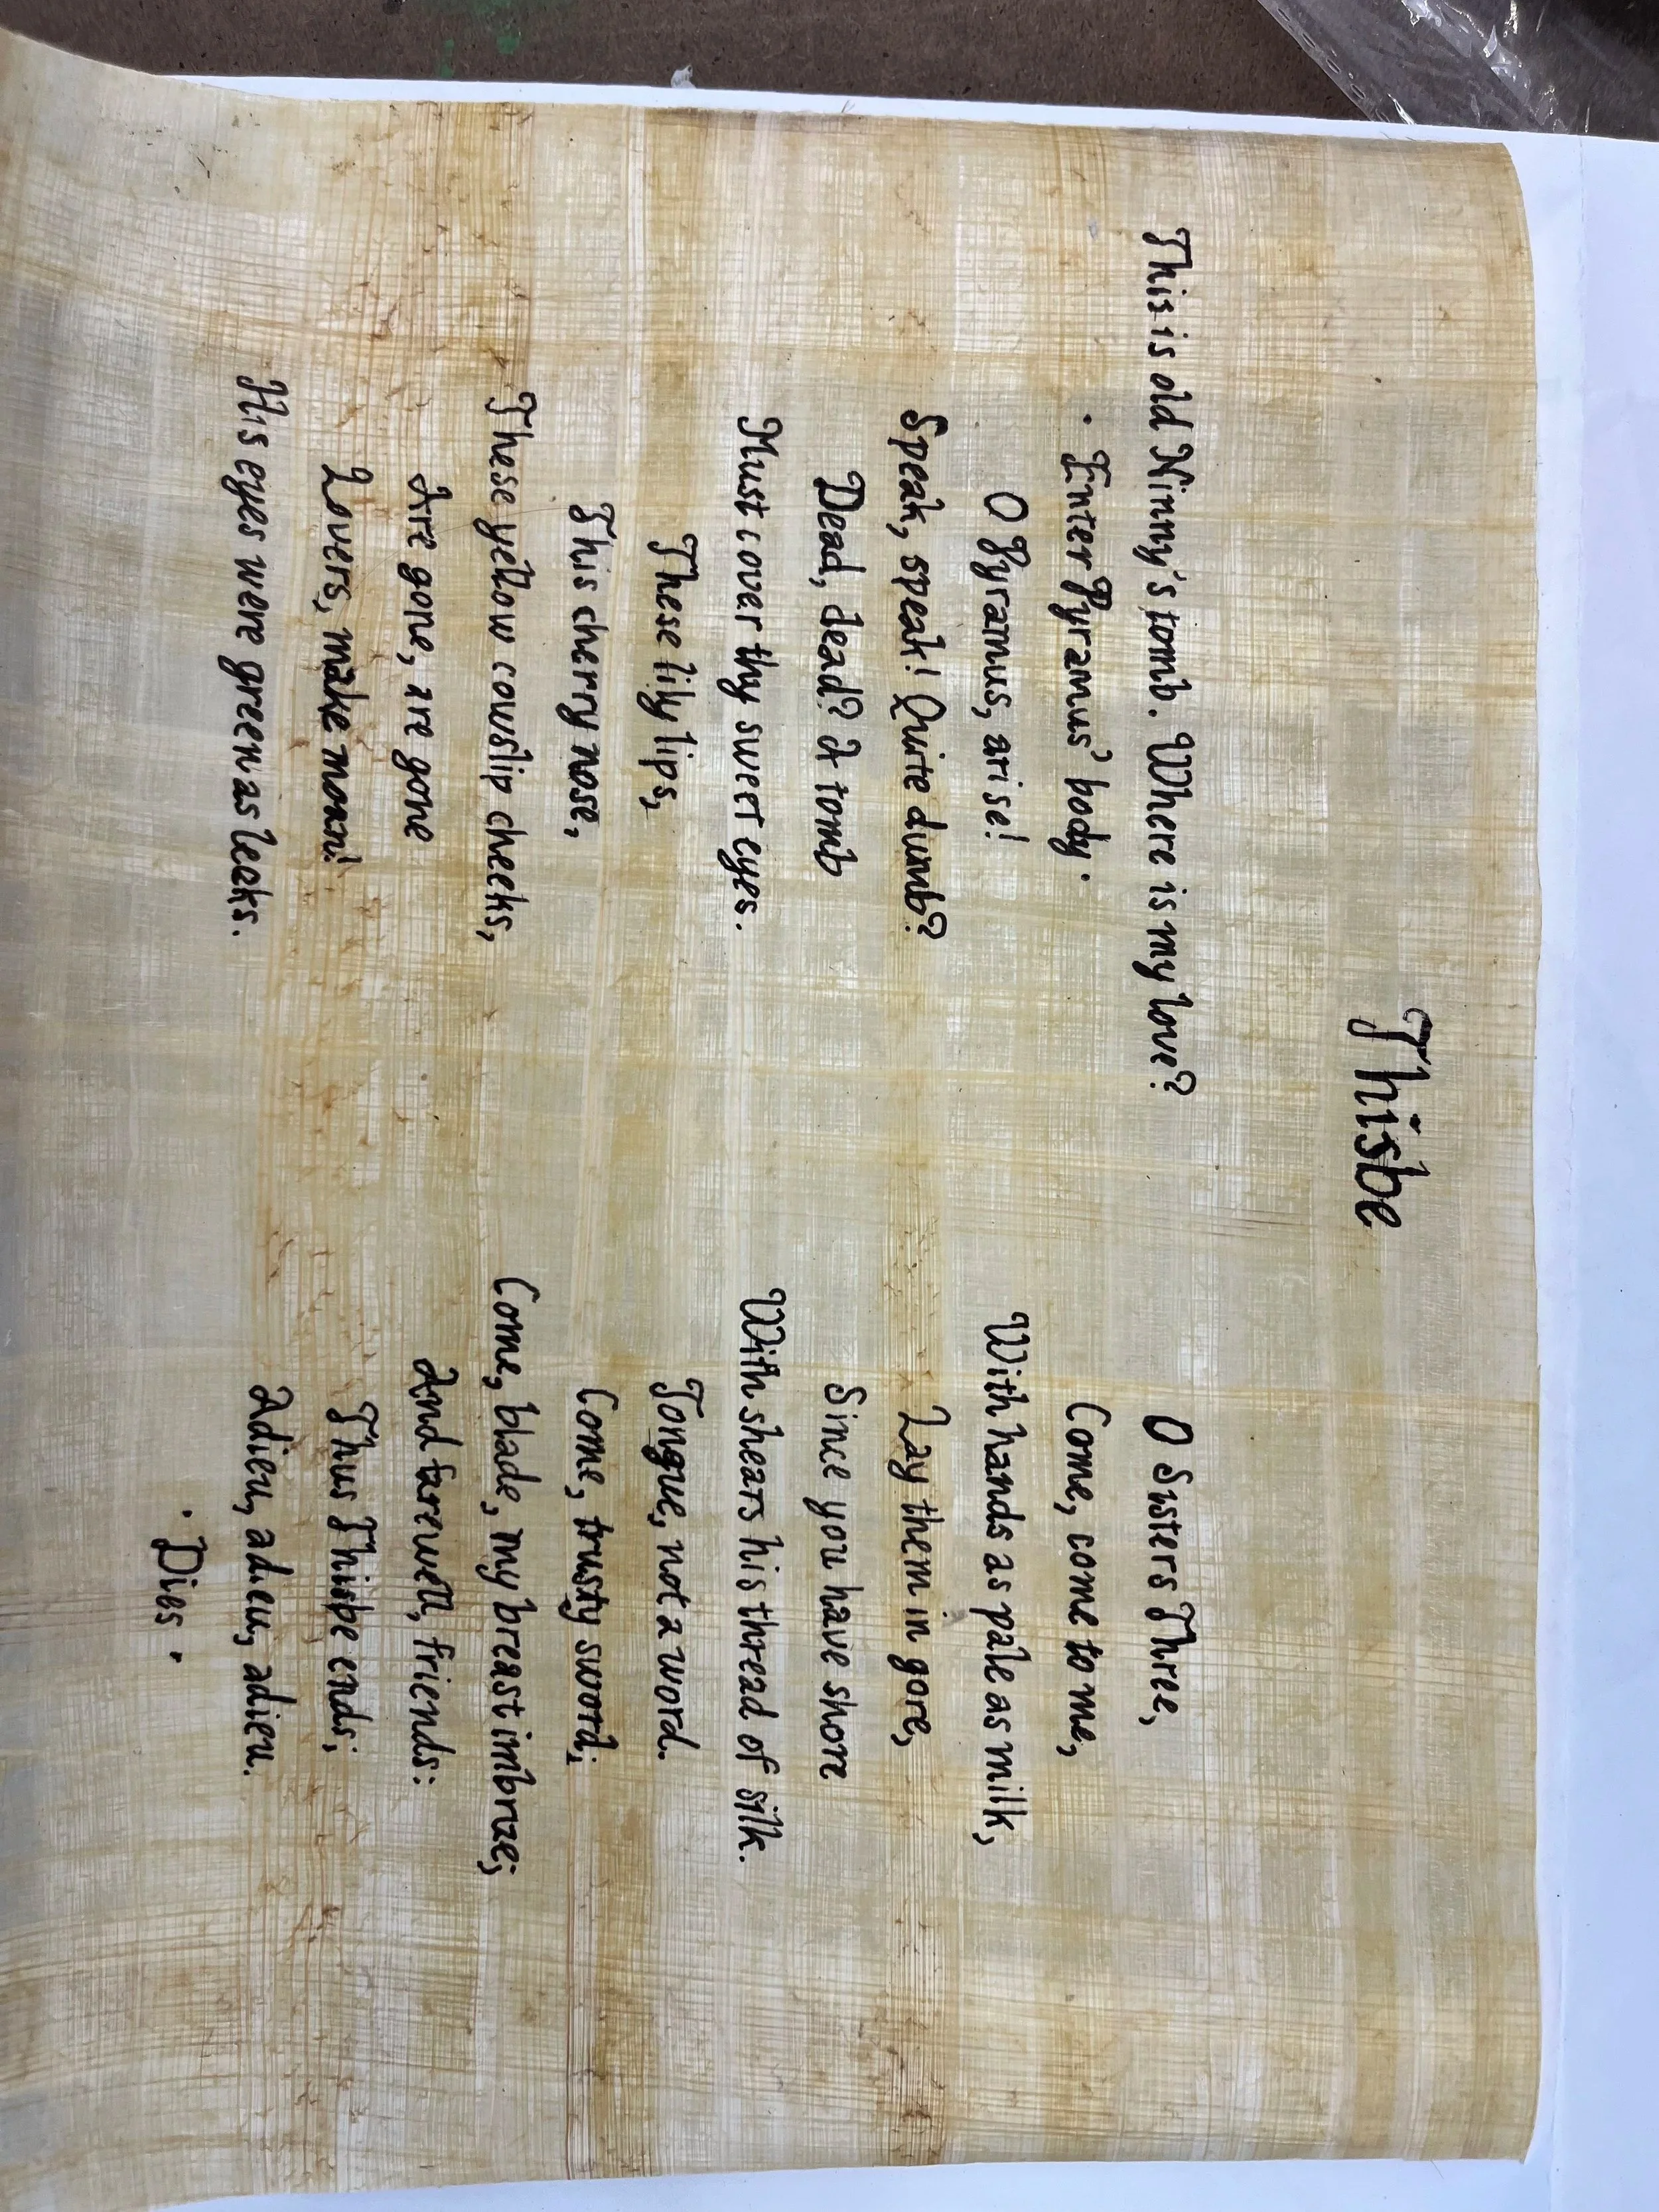 Thisbe
This is old Ninny's tomb. Where is my love?
· Enter Pyramus' body ·
O Pyramus, arise!
Speak, speak! Quite dumb?
Dead, dead? A tomb
Must cover thy sweet eyes.
These lily lips,
This cherry nose,
These yellow cowslip cheeks,
Are gone, are gone
Lovers, make moan!
His eyes were green as leeks.
O Sisters Three,
Come, come to me,
With hands as pale as milk,
Lay them in gore,
Since you have shore
With shears his thread of silk.
Tongue, not a word.
Come, trusty sword;
Come, blade, my breast imbrue;
And farewell, friends:
Thus Thisbe ends;
Adieu, adieu, adieu.
· Dies ·